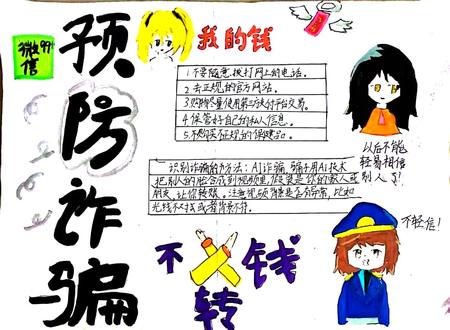 微信
99+
预防诈骗
我的钱
1.不要随意拨打网上的电话。
2.去正规的官方网站。
3.购物尽量使用第三方支付平台交易。
4.保管好自己的私人信息。
5.不购买不正规的保健品。
识别诈骗的方法：AI诈骗，骗子用AI技术
把别人的脸合成到视频里，假装是你的家人或
朋友，让你转账，注意视频
光线不对或着背景不符。
以后不能
轻易相信
别人了！
不轻信！
不
转
钱